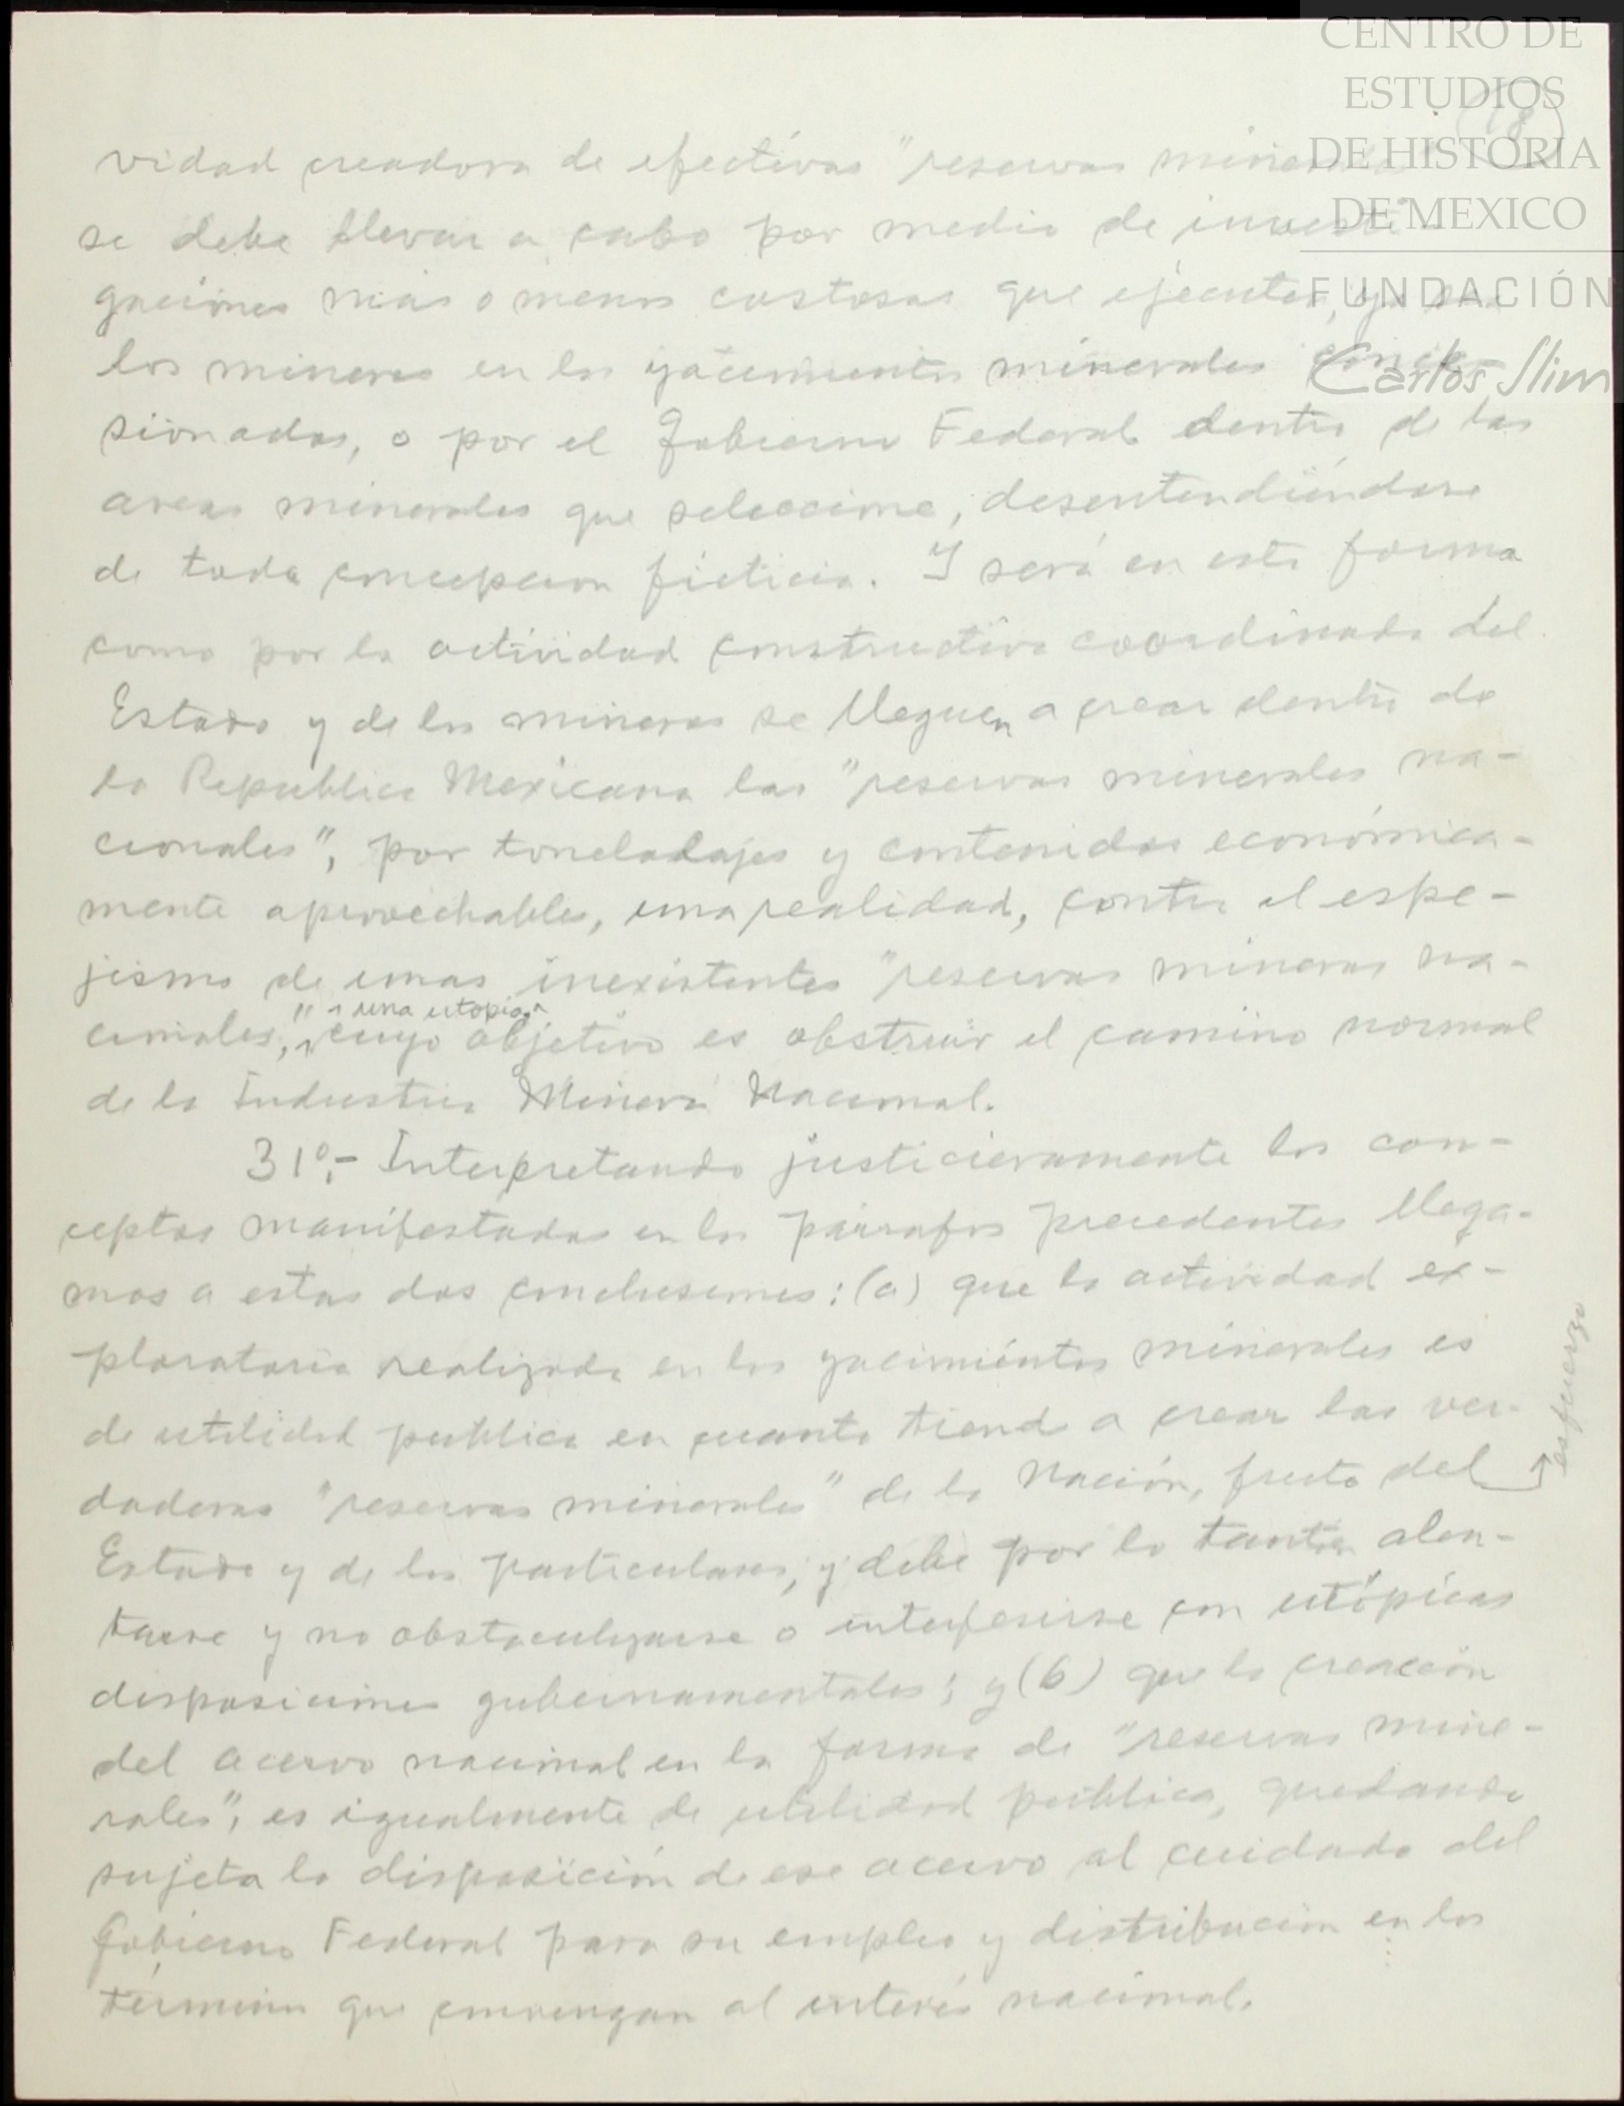 CENTRO DE
ESTUDIOS
DE HISTORIA
DE MEXICO
FUNDACIÓN
Carlos Slim
(18)
vidad creadora de efectivas "reservas minerales"
se debe llevar a cabo por medio de investi-
gaciones más o menos costosas que ejecuten, ya sea
los mineros en los yacimientos minerales conce-
sionados, o por el Gobierno Federal dentro de las
areas minerales que seleccione, desentendiéndose
de toda concepcion ficticia. Y será en esta forma
como por la actividad constructiva coordinada del
Estado y de los mineros se lleguen a crear dentro de
la Republica Mexicana las "reservas minerales na-
cionales", por toneladajes y contenidos económica-
mente aprovechables, una realidad, contra el espe-
jismo de unas inexistentes "reservas mineras na-
una utopia,
cionales," cuyo objetivo es obstruir el camino normal
de la Industria Minera Nacional.
31º.- Interpretando justicieramente los con-
ceptos manifestados en los párrafos precedentes llega-
mos a estas dos conclusiones: (a) que la actividad ex-
ploratoria realizada en los yacimientos minerales es
de utilidad publica en cuanto tiende a crear las ver-
daderas "reservas minerales" de la Nación, fruto del
esfuerzo
Estado y de los particulares, y debe por lo tanto alen-
tarse y no obstaculizarse o interferirse con utópicas
disposiciones gubernamentales; y (b) que la creación
del acervo nacional en la forma de "reservas mine-
rales", es igualmente de utilidad pública, quedando
sujeta la disposición de ese acervo al cuidado del
Gobierno Federal para su empleo y distribución en los
términos que convengan al interés nacional.